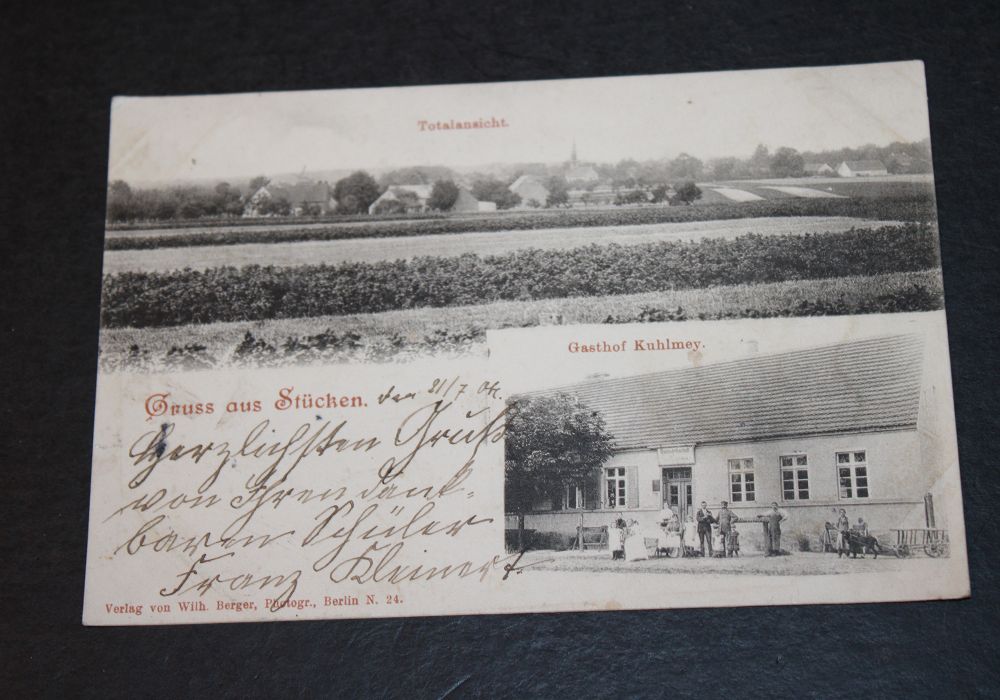 Totalansicht.
Gasthof Kuhlmey.
Gruss aus Stücken. den 21/7 04.
Herzlichsten Gruß
von Ihren dank-
baren Schüler
Franz Kleinert
Verlag von Wilh. Berger, Photogr., Berlin N. 24.